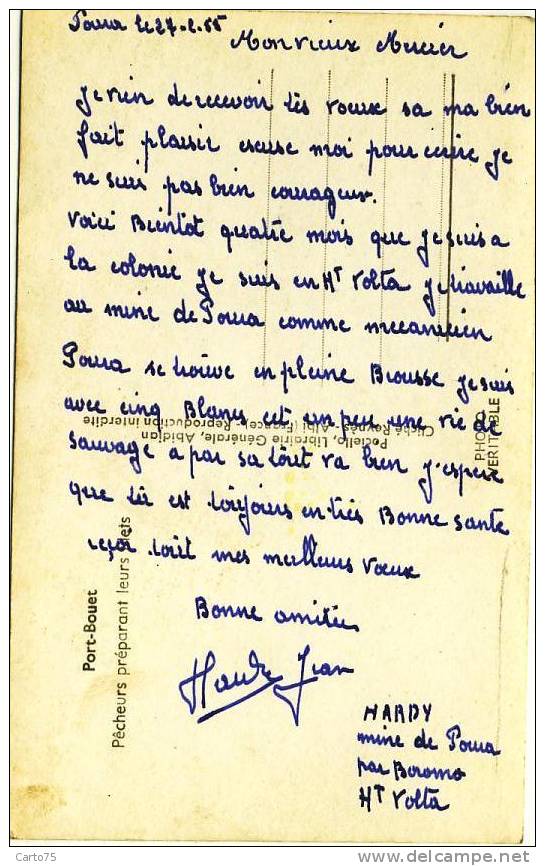 Poura le 27-2-55
Mon vieux Mercier
je vien de recevoir tes vœux sa ma bien
fait plaisir escuse moi pour ecrire je
ne suis pas bien courageux.
voici Bientot quatre mois que je suis a
la colonie je suis en Ht Volta je travaille
au mine de Poura comme mecanicien
Poura se trouve en pleine Brousse je suis
avec cinq Blancs cet un peu une vie de
sauvage a par sa tout va bien j'espere
que tu est toujours en tres Bonne sante
reçoi tout mes meilleurs vœux
Bonne amitiés
Hardy Jean
HARDY
mine de Poura
par Boromo
Ht Volta
Port-Bouet
Pêcheurs préparant leurs filets
Pociello, Librairie Générale, Abidjan
Cliché Raynès - Albi (France). Reproduction interdite
PHOTO
VERITABLE
Carto75
http://www.delcampe.net